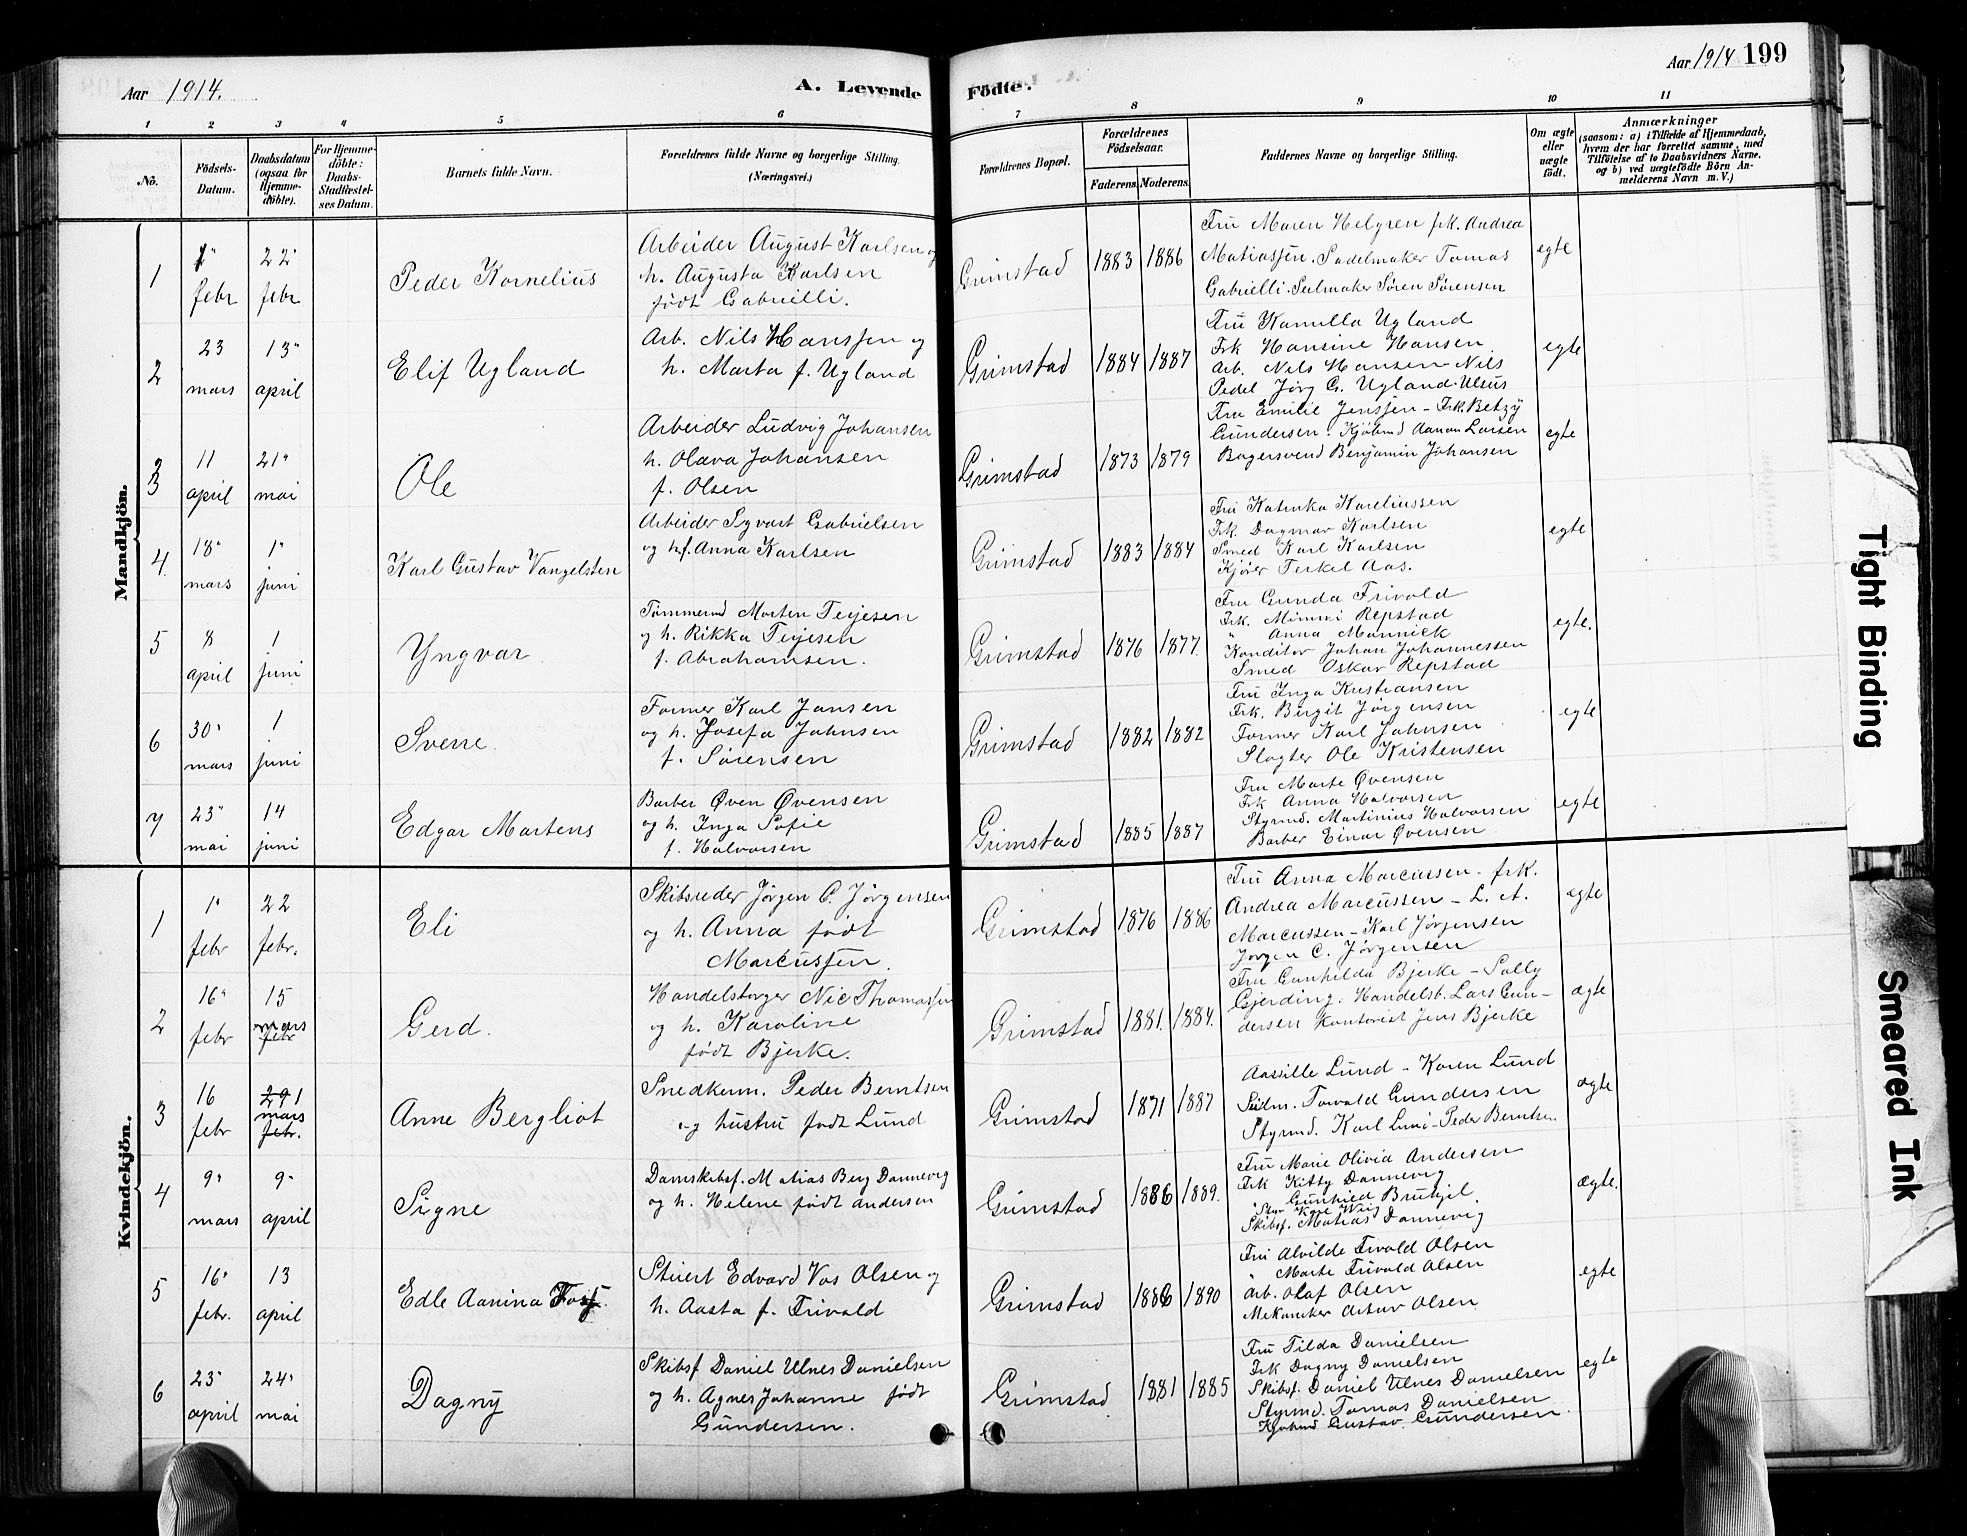 Aar 1914.
A. Levende Födte.
Aar 1914 199
1 2 3 4 5 6 7 8 9 10 11
No.
Födsels-Datum.
Daabsdatum (ogsaa for Hjemme-döbte).
For Hjemme-döbte: Daabs-Stadfæstel-ses Datum.
Barnets fulde Navn.
Forældrenes fulde Navne og borgerlige Stilling. (Næringsvei.)
Forældrenes Bopæl.
Forældrenes Födselsaar.
Faderens. Moderens.
Faddernes Navne og borgerlige Stilling.
Om ægte eller uægte födt.
Anmærkninger
(saasom: a) i Tilfælde af Hjemmedaab, hvem der har forrettet samme, med Tilföielse af to Daabsvidners Navne, og b) ved uægtefödte Börn Anmelderens Navn m. V.)
Mandkjön.
1
1" febr
22" febr
Peder Kornelius
Arbeider August Karlsen og
h. Augusta Karlsen
født Gabrielli.
Grimstad
1883 1886
Fru Maren Helgren frk. Andrea
Matiassen. Sadelmaker Tomas
Gabrielli. Seilmaker Søren Sørensen
egte
2
23 mars
13" april
Elif Ugland
Arb. Nils Hanssen og
h. Marta f. Ugland
Grimstad
1884 1887
Fru Kamilla Ugland
Frk Hansine Hansen
Arb. Nils Hansen - Nils
Pedel Jørg G. Ugland
egte
3
11 april
21" mai
Ole
Arbeider Ludvig Johansen
h. Olava Johansen
f. Olsen
Grimstad
1873 1879
Fru Emilie Jenssen - Frk. Betzy
Gundersen. Kjøbmd Aanon Larsen
Bagersvend Benjamin Johansen
egte
4.
18" mars
1" juni
Karl Gustav Vangelsten
Arbeider Syvart Gabrielsen
og h f. Anna Karlsen
Grimstad
1883 1884
Fru Katinka Kareliussen
Frk. Dagmar Karlsen
Smed Karl Karlsen
Kjører Terkel Aas.
egte
5
8 april
1 juni
Yngvar
Tømmermd Morten Terjesen
og h. Rikka Terjesen
f. Abrahamsen.
Grimstad
1876 1877
Fru Gunda Frivold
Frk. Mimmi Repstad
" Anna Mannick
Konditor Johan Johannessen
Smed Oskar Repstad
egte.
6
30" mars
1 juni
Sverre.
Former Karl Jansen
og h. Josefa Johnsen
f. Sørensen
Grimstad
1882 1882
Fru Inga Kristiansen
Frk. Birgit Jørgensen
Former Karl Johnsen
Slagter Ole Kristensen
egte
7
23" mai
14 juni
Edgar Martens
Barber Øven Øvensen
og h. Inga Sofie
f. Halvorsen
Grimstad
1885 1887
Fru Marte Øvensen
Frk Anna Halvorsen
Styrmd. Martinius Halvorsen
Barber Einar Øvensen
egte
Kvindekjön.
1
1" febr
22 febr.
Eli
Skibsreder Jørgen C. Jørgensen
og h. Anna født
Marcussen.
Grimstad
1876 1886
Fru Anna Marcussen - frk.
Andrea Marcussen - L. A.
Marcussen - Karl Jørgensen
Jørgen C. Jørgensen
ægte
2
16" febr
15 mars febr
Gerd.
Handelsborger Nic Thomassen
og h. Karoline
født Bjerke.
Grimstad
1881. 1884.
Fru Gunhilda Bjerke - Solly
Gjerding. Handelsb. Lars Gun-
dersen Kontorist Jens Bjerke
ægte
3
16 febr
291 mars febr.
Anne Bergliot
Snedkerm. Peder Berntsen
og hustru født Lund
Grimstad
1871 1887
Aasille Lund - Karen Lund
Torvald Gundersen
Styrmd. Karl Lund - Peder Berntsen
ægte
4
9" mars
9" april
Signe
Damskibsf. Matias Berg Dannevig
og h. Helene født Andersen
Grimstad
1886 1889.
Fru Marie Olivia Andersen
Frk Kitty Dannevig
" Gunhild
Skibsf. Matias Dannevig
ægte.
5
16" febr.
13 april
Edle Aanina
Stuert Edvard Vas Olsen og
h. Aasta f. Frivald
Grimstad
1886 1890
Fru Alvilde Frivold Olsen
" Marte Frivold Olsen
Arb. Olaf Olsen
Mekaniker Artur Olsen
egte
6
23" april
24" mai
Dagny
Skibsf Daniel Ulnes Danielsen
og h. Agnes Johanne født
Gundersen.
Grimstad
1881 1885
Fru Tilda Danielsen
Frk Dagny Danielsen
Skibsf. Daniel Ulnes Danielsen
Styrmd. Tomas Danielsen
Kjøbmd Gustav Gundersen
egte
Tight Binding
Smeared Ink